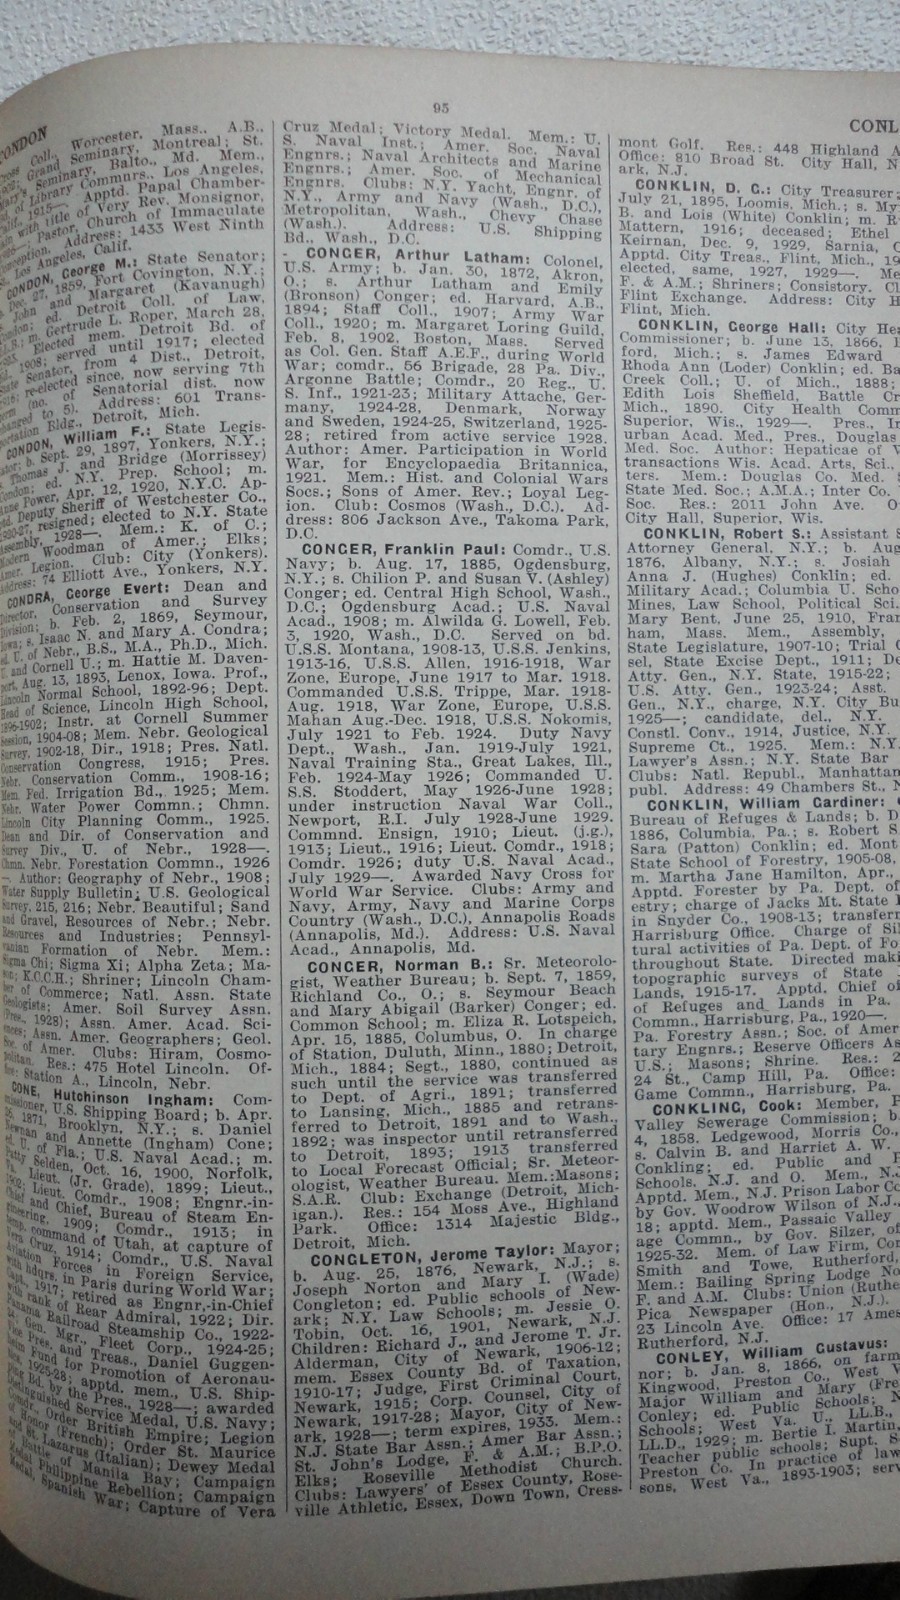 95
CONDON
CONL
Coll., Worcester, Mass., A.B.,
Grand Seminary, Montreal; St.
Mary's Seminary, Balto., Md. Mem.,
of Library Commnrs., Los Angeles,
1915—. Apptd. Papal Chamber-
with title of Very Rev. Monsignor,
Pastor, Church of Immaculate
Conception. Address: 1433 West Ninth
St., Los Angeles, Calif.
CONDON, George M.: State Senator;
b. Dec. 27, 1859, Fort Covington, N.Y.;
s. John and Margaret (Kavanugh)
Condon; ed. Detroit Coll. of Law,
m. Gertrude L. Roper, March 28,
Elected mem. Detroit Bd. of
1908; served until 1917; elected
State Senator, from 4 Dist., Detroit,
re-elected since, now serving 7th
term (no. of Senatorial dist. now
changed to 5). Address: 601 Trans-
portation Bldg., Detroit, Mich.
CONDON, William F.: State Legis-
lator; b. Sept. 29, 1897, Yonkers, N.Y.;
s. Thomas J. and Bridge (Morrissey)
Condon; ed. N.Y. Prep. School; m.
Power, Apr. 12, 1920, N.Y.C. Ap-
ptd. Deputy Sheriff of Westchester Co.,
1920-27, resigned; elected to N.Y. State
Assembly, 1928—. Mem.: K. of C.;
Modern Woodman of Amer.; Elks;
Amer. Legion. Club: City (Yonkers).
Address: 74 Elliott Ave., Yonkers, N.Y.
CONDRA, George Evert: Dean and
Director, Conservation and Survey
Division; b. Feb. 2, 1869, Seymour,
Iowa; s. Isaac N. and Mary A. Condra;
ed. U. of Nebr., B.S., M.A., Ph.D., Mich.
U. and Cornell U.; m. Hattie M. Daven-
port, Aug. 13, 1893, Lenox, Iowa. Prof.,
Lincoln Normal School, 1892-96; Dept.
Head of Science, Lincoln High School,
1896-1902; Instr. at Cornell Summer
Session, 1904-08; Mem. Nebr. Geological
Survey, 1902-18, Dir., 1918; Pres. Natl.
Conservation Congress, 1915; Pres.
Nebr. Conservation Comm., 1908-16;
Mem. Fed. Irrigation Bd., 1925; Mem.
Nebr. Water Power Commn.; Chmn.
Lincoln City Planning Comm., 1925.
Dean and Dir. of Conservation and
Survey Div., U. of Nebr., 1928—.
Chmn. Nebr. Forestation Commn., 1926
—. Author: Geography of Nebr., 1908;
Water Supply Bulletin; U.S. Geological
Survey, 215, 216; Nebr. Beautiful; Sand
and Gravel, Resources of Nebr.; Nebr.
Resources and Industries; Pennsyl-
vanian Formation of Nebr. Mem.:
Sigma Chi; Sigma Xi; Alpha Zeta; Ma-
son; K.C.C.H.; Shriner; Lincoln Cham-
ber of Commerce; Natl. Assn. State
Geologists; Amer. Soil Survey Assn.
(Pres., 1928); Assn. Amer. Acad. Sci-
ences; Assn. Amer. Geographers; Geol.
Soc. of Amer. Clubs: Hiram, Cosmo-
politan. Res.: 475 Hotel Lincoln. Of-
fice: Station A., Lincoln, Nebr.
CONE, Hutchinson Ingham: Com-
missioner, U.S. Shipping Board; b. Apr.
26, 1871, Brooklyn, N.Y.; s. Daniel
Newnan and Annette (Ingham) Cone;
ed. U. of Fla.; U.S. Naval Acad.; m.
Patty Selden, Oct. 16, 1900, Norfolk,
Va. Lieut. (Jr. Grade), 1899; Lieut.,
1902; Lieut. Comdr., 1908; Engnr.-in-
Chief and Chief, Bureau of Steam En-
gineering, 1909; Comdr., 1913; in
temp. command of Utah, at capture of
Vera Cruz, 1914; Comdr., U.S. Naval
Aviation Forces in Foreign Service,
with hdqrs. in Paris during World War;
Capt., 1917; retired as Engnr.-in-Chief
with rank of Rear Admiral, 1922; Dir.
Panama Railroad Steamship Co., 1922-
Gen. Mgr., Fleet Corp., 1924-25;
Vice Pres. and Treas., Daniel Guggen-
heim Fund for Promotion of Aeronau-
tics, 1925-28; apptd. mem., U.S. Ship-
ping Bd. by the Pres., 1928—; awarded
Distinguished Service Medal, U.S. Navy;
Comdr., Order British Empire; Legion
of Honor (French); Order St. Maurice
and St. Lazarus (Italian); Dewey Medal
of Battle of Manila Bay; Campaign
Medal Philippine Rebellion; Campaign
Medal, Spanish War; Capture of Vera
Cruz Medal; Victory Medal. Mem.: U.
S. Naval Inst.; Amer. Soc. Naval
Engnrs.; Naval Architects and Marine
Engnrs.; Amer. Soc. of Mechanical
Engnrs. Clubs: N.Y. Yacht, Engnr. of
N.Y., Army and Navy (Wash., D.C.),
Metropolitan, Wash., Chevy Chase
(Wash.). Address: U.S. Shipping
Bd., Wash., D.C.
CONGER, Arthur Latham: Colonel,
U.S. Army; b. Jan. 30, 1872, Akron,
O.; s. Arthur Latham and Emily
(Bronson) Conger; ed. Harvard, A.B.,
1894; Staff Coll., 1907; Army War
Coll., 1920; m. Margaret Loring Guild,
Feb. 8, 1902, Boston, Mass. Served
as Col. Gen. Staff A.E.F., during World
War; comdr., 56 Brigade, 28 Pa. Div.,
Argonne Battle; Comdr., 20 Reg., U.
S. Inf., 1921-23; Military Attache, Ger-
many, 1924-28, Denmark, Norway
and Sweden, 1924-25, Switzerland, 1925-
28; retired from active service 1928.
Author: Amer. Participation in World
War, for Encyclopaedia Britannica,
1921. Mem.: Hist. and Colonial Wars
Socs.; Sons of Amer. Rev.; Loyal Leg-
ion. Club: Cosmos (Wash., D.C.). Ad-
dress: 806 Jackson Ave., Takoma Park,
D.C.
CONGER, Franklin Paul: Comdr., U.S.
Navy; b. Aug. 17, 1885, Ogdensburg,
N.Y.; s. Chilion P. and Susan V. (Ashley)
Conger; ed. Central High School, Wash.,
D.C.; Ogdensburg Acad.; U.S. Naval
Acad., 1908; m. Alwilda G. Lowell, Feb.
3, 1920, Wash., D.C. Served on bd.
U.S.S. Montana, 1908-13, U.S.S. Jenkins,
1913-16, U.S.S. Allen, 1916-1918, War
Zone, Europe, June 1917 to Mar. 1918.
Commanded U.S.S. Trippe, Mar. 1918-
Aug. 1918, War Zone, Europe, U.S.S.
Mahan Aug.-Dec. 1918, U.S.S. Nokomis,
July 1921 to Feb. 1924. Duty Navy
Dept., Wash., Jan. 1919-July 1921,
Naval Training Sta., Great Lakes, Ill.,
Feb. 1924-May 1926; Commanded U.
S.S. Stoddert, May 1926-June 1928;
under instruction Naval War Coll.,
Newport, R.I. July 1928-June 1929.
Commnd. Ensign, 1910; Lieut. (j.g.),
1913; Lieut., 1916; Lieut. Comdr., 1918;
Comdr. 1926; duty U.S. Naval Acad.,
July 1929—. Awarded Navy Cross for
World War Service. Clubs: Army and
Navy, Army, Navy and Marine Corps
Country (Wash., D.C.), Annapolis Roads
(Annapolis, Md.). Address: U.S. Naval
Acad., Annapolis, Md.
CONGER, Norman B.: Sr. Meteorolo-
gist, Weather Bureau; b. Sept. 7, 1859,
Richland Co., O.; s. Seymour Beach
and Mary Abigail (Barker) Conger; ed.
Common School; m. Eliza R. Lotspeich,
Apr. 15, 1885, Columbus, O. In charge
of Station, Duluth, Minn., 1880; Detroit,
Mich., 1884; Segt., 1880, continued as
such until the service was transferred
to Dept. of Agri., 1891; transferred
to Lansing, Mich., 1885 and retrans-
ferred to Detroit, 1891 and to Wash.,
1892; was inspector until retransferred
to Detroit, 1893; 1913 transferred
to Local Forecast Official; Sr. Meteor-
ologist, Weather Bureau. Mem.:Masons;
S.A.R. Club: Exchange (Detroit, Mich-
igan.). Res.: 154 Moss Ave., Highland
Park. Office: 1314 Majestic Bldg.,
Detroit, Mich.
CONGLETON, Jerome Taylor: Mayor;
b. Aug. 25, 1876, Newark, N.J.; s.
Joseph Norton and Mary I. (Wade)
Congleton; ed. Public schools of New-
ark; N.Y. Law Schools; m. Jessie O.
Tobin, Oct. 16, 1901, Newark, N.J.
Children: Richard J., and Jerome T. Jr.
Alderman, City of Newark, 1906-12;
mem. Essex County Bd. of Taxation,
1910-17; Judge, First Criminal Court,
Newark, 1915; Corp. Counsel, City of
Newark, 1917-28; Mayor, City of New-
ark, 1928—; term expires, 1933. Mem.:
N.J. State Bar Assn.; Amer Bar Assn.;
St. John's Lodge, F. & A.M.; B.P.O.
Elks; Roseville Methodist Church.
Clubs: Lawyers' of Essex County, Rose-
ville Athletic, Essex, Down Town, Cress-
mont Golf. Res.: 448 Highland A
Office: 810 Broad St. City Hall, N
ark, N.J.
CONKLIN, D. C.: City Treasurer;
July 21, 1895, Loomis, Mich.; s. My
B. and Lois (White) Conklin; m. R
Mattern, 1916; deceased; Ethel
Keirnan, Dec. 9, 1929, Sarnia, C
Apptd. City Treas., Flint, Mich., 19
elected, same, 1927, 1929—. Me
F. & A.M.; Shriners; Consistory. Cl
Flint Exchange. Address: City H
Flint, Mich.
CONKLIN, George Hall: City He
Commissioner; b. June 13, 1866, I
ford, Mich.; s. James Edward
Rhoda Ann (Loder) Conklin; ed. Ba
Creek Coll.; U. of Mich., 1888;
Edith Lois Sheffield, Battle Cr
Mich., 1890. City Health Comm
Superior, Wis., 1929—. Pres., In
urban Acad. Med., Pres., Douglas
Med. Soc. Author: Hepaticae of V
transactions Wis. Acad. Arts, Sci.,
ters. Mem.: Douglas Co. Med. S
State Med. Soc.; A.M.A.; Inter Co.
Soc. Res.: 2011 John Ave. O
City Hall, Superior, Wis.
CONKLIN, Robert S.: Assistant S
Attorney General, N.Y.; b. Aug
1876, Albany, N.Y.; s. Josiah
Anna J. (Hughes) Conklin; ed.
Military Acad.; Columbia U. Scho
Mines, Law School, Political Sci.
Mary Bent, June 25, 1910, Fran
ham, Mass. Mem., Assembly,
State Legislature, 1907-10; Trial C
sel, State Excise Dept., 1911; De
Atty. Gen., N.Y. State, 1915-22;
U.S. Atty. Gen., 1923-24; Asst.
Gen., N.Y., charge, N.Y. City Bu
1925—; candidate, del., N.Y.
Constl. Conv., 1914, Justice, N.Y.
Supreme Ct., 1925. Mem.: N.Y.
Lawyer's Assn.; N.Y. State Bar
Clubs: Natl. Republ., Manhattan
publ. Address: 49 Chambers St., N
CONKLIN, William Gardiner: C
Bureau of Refuges & Lands; b. D
1886, Columbia, Pa.; s. Robert S.
Sara (Patton) Conklin; ed. Mont
State School of Forestry, 1905-08,
m. Martha Jane Hamilton, Apr.,
Apptd. Forester by Pa. Dept. of
estry; charge of Jacks Mt. State I
in Snyder Co., 1908-13; transferr
Harrisburg Office. Charge of Sil
tural activities of Pa. Dept. of Fo
throughout State. Directed maki
topographic surveys of State
Lands, 1915-17. Apptd. Chief of
of Refuges and Lands in Pa.
Commn., Harrisburg, Pa., 1920—.
Pa. Forestry Assn.; Soc. of Amer
tary Engnrs.; Reserve Officers As
U.S.; Masons; Shrine. Res.: 2
24 St., Camp Hill, Pa. Office:
Game Commn., Harrisburg, Pa.
CONKLING, Cook: Member, P
Valley Sewerage Commission; b.
4, 1858. Ledgewood, Morris Co.,
s. Calvin B. and Harriet A. W.
Conkling; ed. Public and P
Schools, N.J. and O. Mem., N.J
Apptd. Mem., N.J. Prison Labor Co
by Gov. Woodrow Wilson of N.J.,
18; apptd. Mem., Passaic Valley
age Commn., by Gov. Silzer, of
1925-32. Mem. of Law Firm, Con
Smith and Towe, Rutherford,
Mem.: Bailing Spring Lodge No
F. and A.M. Clubs: Union (Ruthe
Pica Newspaper (Hon., N.J.).
23 Lincoln Ave. Office: 17 Ames
Rutherford, N.J.
CONLEY, William Gustavus:
nor; b. Jan. 8, 1866, on farm
Kingwood, Preston Co., West V
Major William and Mary (Fre
Conley; ed. Public Schools; N
Schools; West Va. U., LL.B.,
LL.D., 1929; m. Bertie I. Martin,
Teacher public schools; Supt. S
Preston Co. In practice of law
sons, West Va., 1893-1903; serv